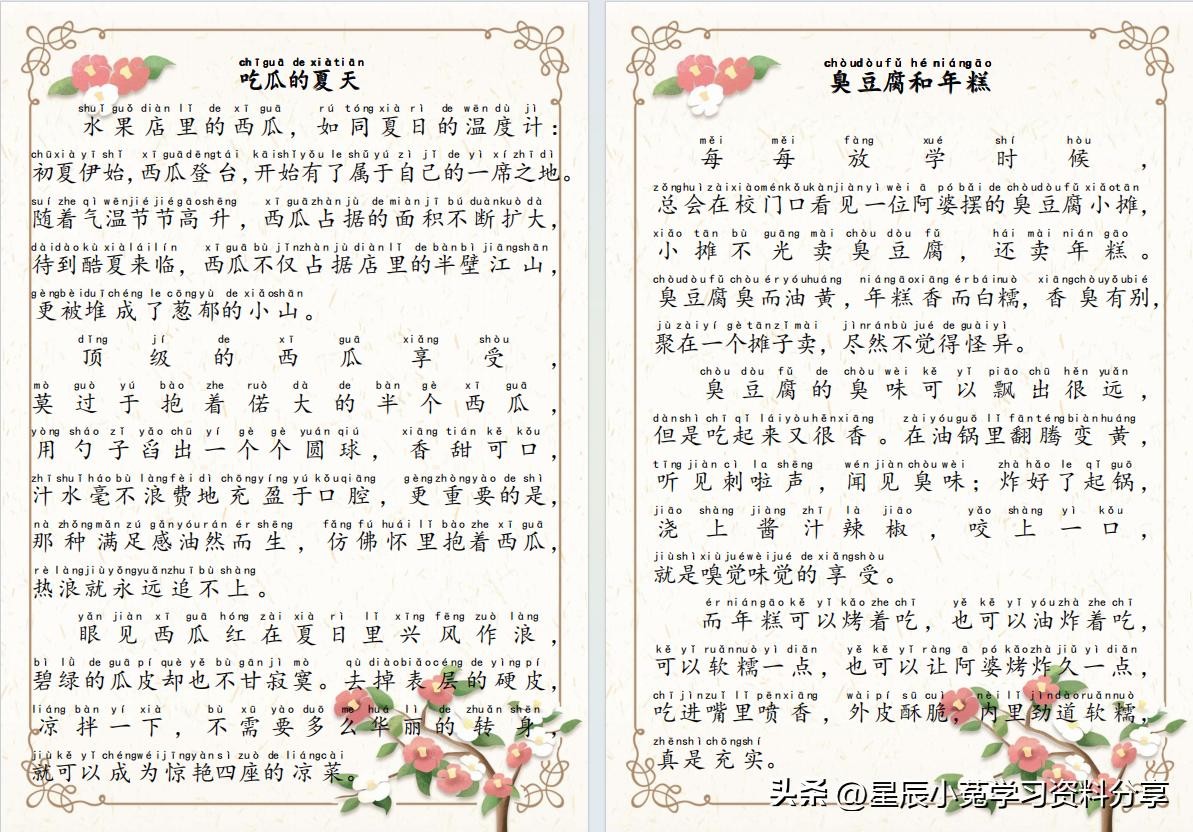 chī guā de xià tiān
吃瓜的夏天
shuǐ guǒ diàn lǐ de xī guā rú tóng xià rì de wēn dù jì
水果店里的西瓜，如同夏日的温度计：
chū xià yī shǐ xī guā dēng tái kāi shǐ yǒu le shǔ yú zì jǐ de yì xí zhī dì
初夏伊始，西瓜登台，开始有了属于自己的一席之地。
suí zhe qì wēn jié jié gāo shēng xī guā zhàn jù de miàn jī bú duàn kuò dà
随着气温节节高升，西瓜占据的面积不断扩大，
dài dào kù xià lái lín xī guā bù jǐn zhàn jù diàn lǐ de bàn bì jiāng shān
待到酷夏来临，西瓜不仅占据店里的半壁江山，
gèng bèi duī chéng le cōng yù de xiǎo shān
更被堆成了葱郁的小山。
dǐng jí de xī guā xiǎng shòu
顶级的西瓜享受，
mò guò yú bào zhe ruò dà de bàn gè xī guā
莫过于抱着偌大的半个西瓜，
yòng sháo zǐ yǎo chū yí gè gè yuán qiú xiāng tián kě kǒu
用勺子舀出一个个圆球，香甜可口，
zhī shuǐ háo bù làng fèi dì chōng yíng yú kǒu qiāng gèng zhòng yào de shì
汁水毫不浪费地充盈于口腔，更重要的是，
nà zhǒng mǎn zú gǎn yóu rán ér shēng fǎng fú huái lǐ bào zhe xī guā
那种满足感油然而生，仿佛怀里抱着西瓜，
rè làng jiù yǒng yuǎn zhuī bù shàng
热浪就永远追不上。
yǎn jiàn xī guā hóng zài xià rì lǐ xīng fēng zuò làng
眼见西瓜红在夏日里兴风作浪，
bì lǜ de guā pí què yě bù gān jì mò qù diào biǎo céng de yìng pí
碧绿的瓜皮却也不甘寂寞。去掉表层的硬皮，
liáng bàn yí xià bù xū yào duō me huá lì de zhuǎn shēn
凉拌一下，不需要多么华丽的转身，
jiù kě yǐ chéng wéi jīng yàn sì zuò de liáng cài
就可以成为惊艳四座的凉菜。
chòu dòu fǔ hé nián gāo
臭豆腐和年糕
měi měi fàng xué shí hòu
每每放学时候，
zǒng huì zài xiào mén kǒu kàn jiàn yì wèi ā pó bǎi de chòu dòu fǔ xiǎo tān
总会在校门口看见一位阿婆摆的臭豆腐小摊，
xiǎo tān bù guāng mài chòu dòu fǔ hái mài nián gāo
小摊不光卖臭豆腐，还卖年糕。
chòu dòu fǔ chòu ér yóu huáng nián gāo xiāng ér bái nuò xiāng chòu yǒu bié
臭豆腐臭而油黄，年糕香而白糯，香臭有别，
jù zài yí gè tān zǐ mài jìn rán bù jué de guài yì
聚在一个摊子卖，尽然不觉得怪异。
chòu dòu fǔ de chòu wèi kě yǐ piāo chū hěn yuǎn
臭豆腐的臭味可以飘出很远，
dàn shì chī qǐ lái yòu hěn xiāng zài yóu guō lǐ fān téng biàn huáng
但是吃起来又很香。在油锅里翻腾变黄，
tīng jiàn cì la shēng wén jiàn chòu wèi zhà hǎo le qǐ guō
听见刺啦声，闻见臭味；炸好了起锅，
jiāo shàng jiàng zhī là jiāo yǎo shàng yì kǒu
浇上酱汁辣椒，咬上一口，
jiù shì xiù jué wèi jué de xiǎng shòu
就是嗅觉味觉的享受。
ér nián gāo kě yǐ kǎo zhe chī yě kě yǐ yóu zhà zhe chī
而年糕可以烤着吃，也可以油炸着吃，
kě yǐ ruǎn nuò yì diǎn yě kě yǐ ràng ā pó kǎo zhà jiǔ yì diǎn
可以软糯一点，也可以让阿婆烤炸久一点，
chī jìn zuǐ lǐ pēn xiāng wài pí sū cuì nèi lǐ jìn dào ruǎn nuò
吃进嘴里喷香，外皮酥脆，内里劲道软糯，
zhēn shì chōng shí
真是充实。
头条 @星辰小菟学习资料分享